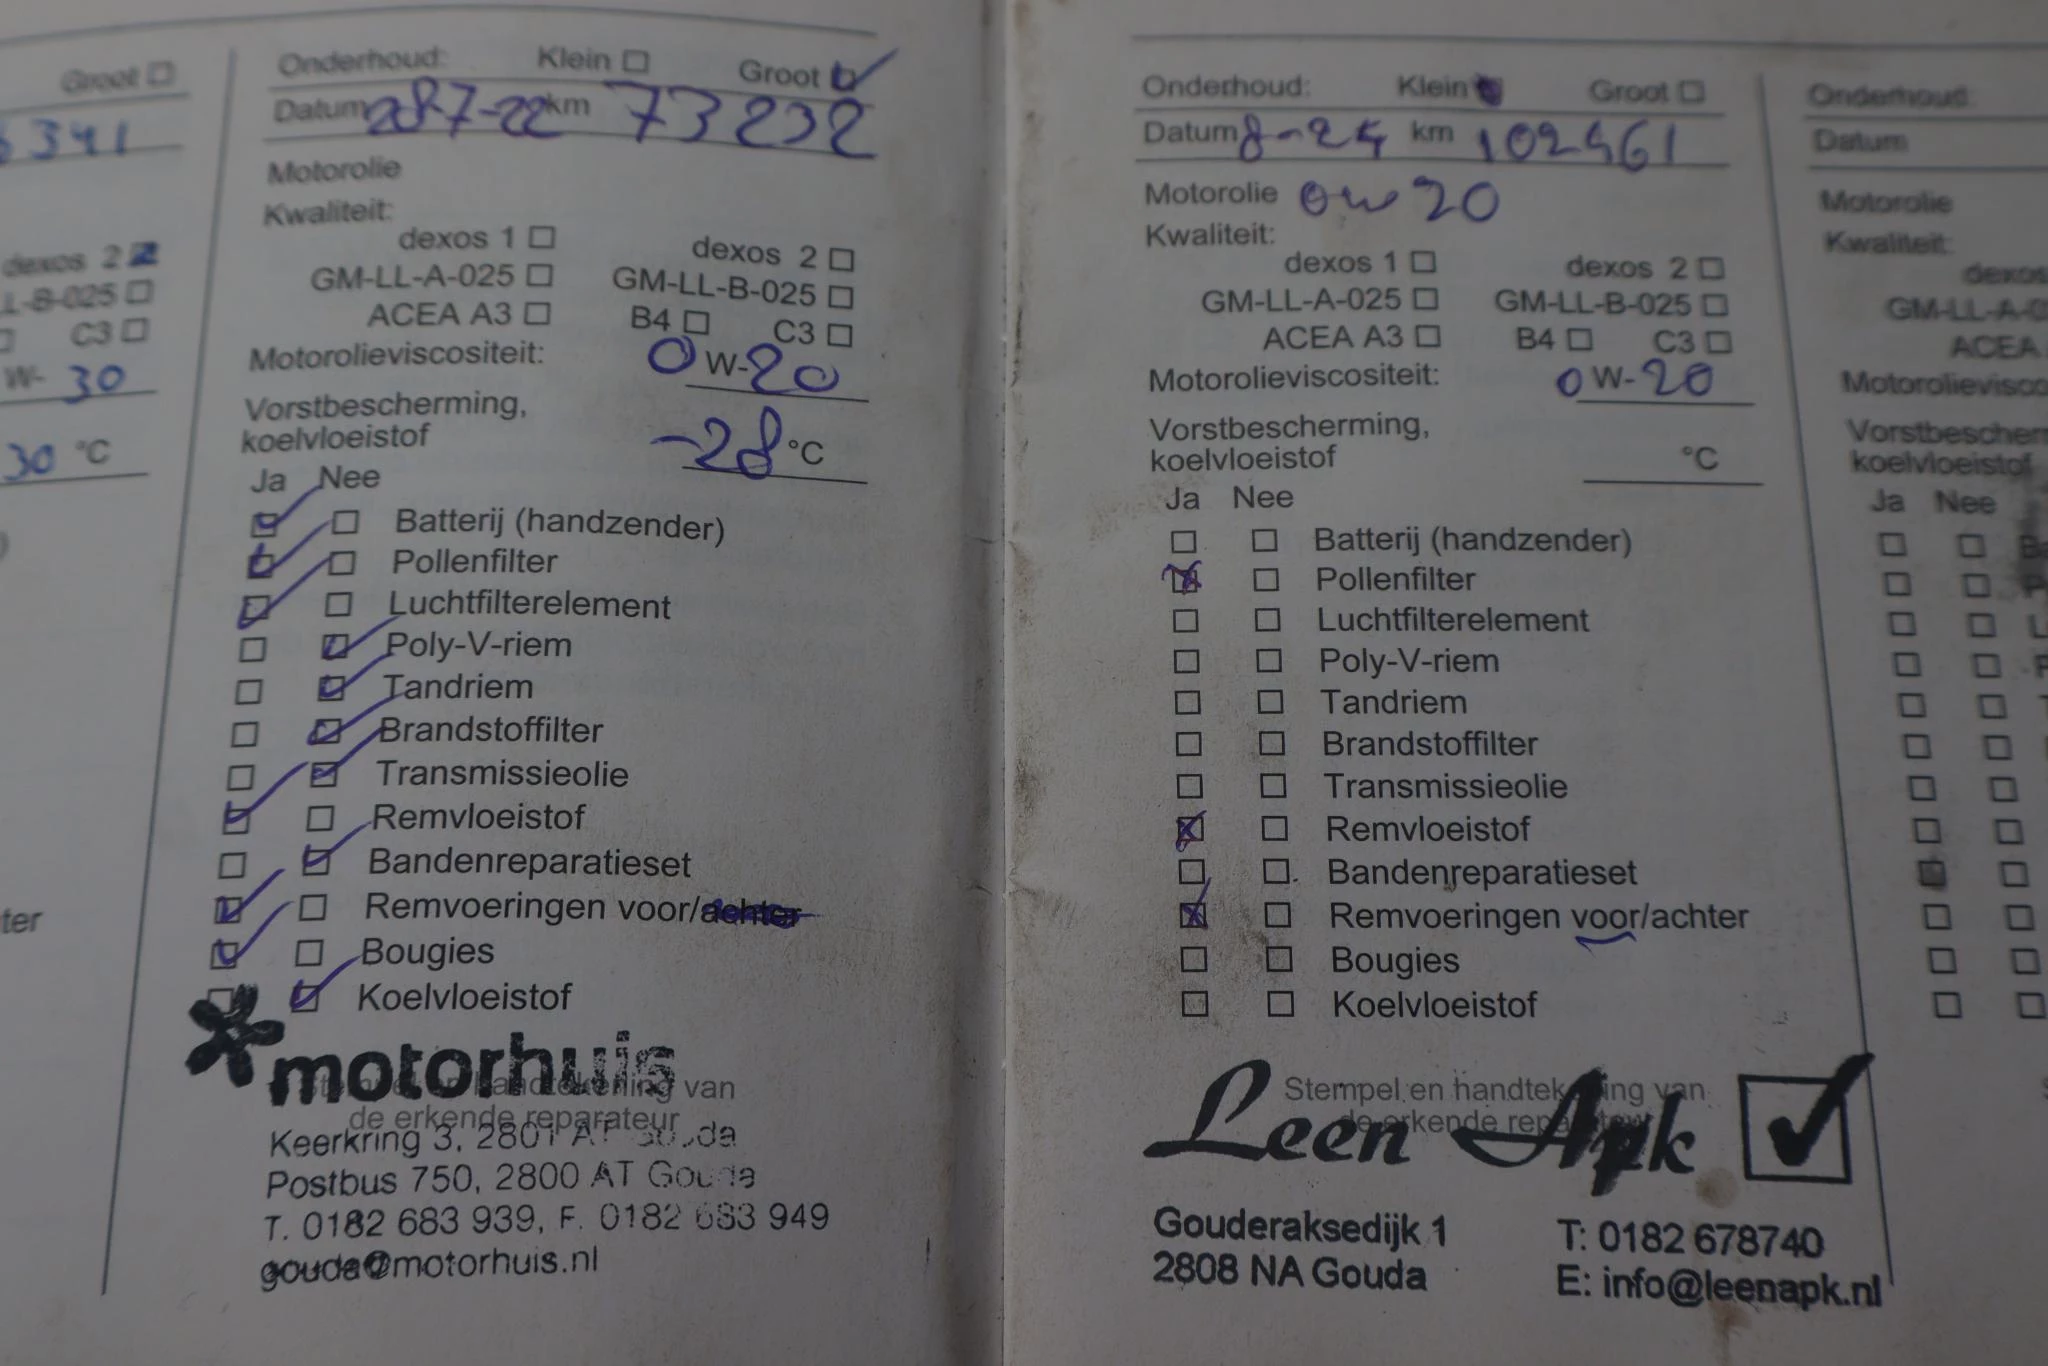 Groot
341
dexos 2
L-B-025
C3
W- 30
30 °C
ter
Onderhoud: Klein Groot
Datum 28-7-22 km 73232
Motorolie
Kwaliteit:
dexos 1 dexos 2
GM-LL-A-025 GM-LL-B-025
ACEA A3 B4 C3
Motorolieviscositeit: 0 W-20
Vorstbescherming,
koelvloeistof -28 °C
Ja Nee
Batterij (handzender)
Pollenfilter
Luchtfilterelement
Poly-V-riem
Tandriem
Brandstoffilter
Transmissieolie
Remvloeistof
Bandenreparatieset
Remvoeringen voor/achter
Bougies
Koelvloeistof
motorhuis
Stempel en handtekening van
de erkende reparateur
Keerkring 3, 2801 Gouda
Postbus 750, 2800 AT Gouda
T. 0182 683 939, F. 0182 683 949
gouda@motorhuis.nl
Onderhoud: Klein Groot
Datum 8-24 km 102461
Motorolie 0w20
Kwaliteit:
dexos 1 dexos 2
GM-LL-A-025 GM-LL-B-025
ACEA A3 B4 C3
Motorolieviscositeit: 0 W-20
Vorstbescherming,
koelvloeistof °C
Ja Nee
Batterij (handzender)
Pollenfilter
Luchtfilterelement
Poly-V-riem
Tandriem
Brandstoffilter
Transmissieolie
Remvloeistof
Bandenreparatieset
Remvoeringen voor/achter
Bougies
Koelvloeistof
Stempel en handtekening van
de erkende reparateur
Leen Apk
Gouderaksedijk 1 T: 0182 678740
2808 NA Gouda E: info@leenapk.nl
Onderhoud:
Datum
Motorolie
Kwaliteit:
dexos
GM-LL-A-0
ACEA
Motorolieviscos
Vorstbescherm
koelvloeistof
Ja Nee